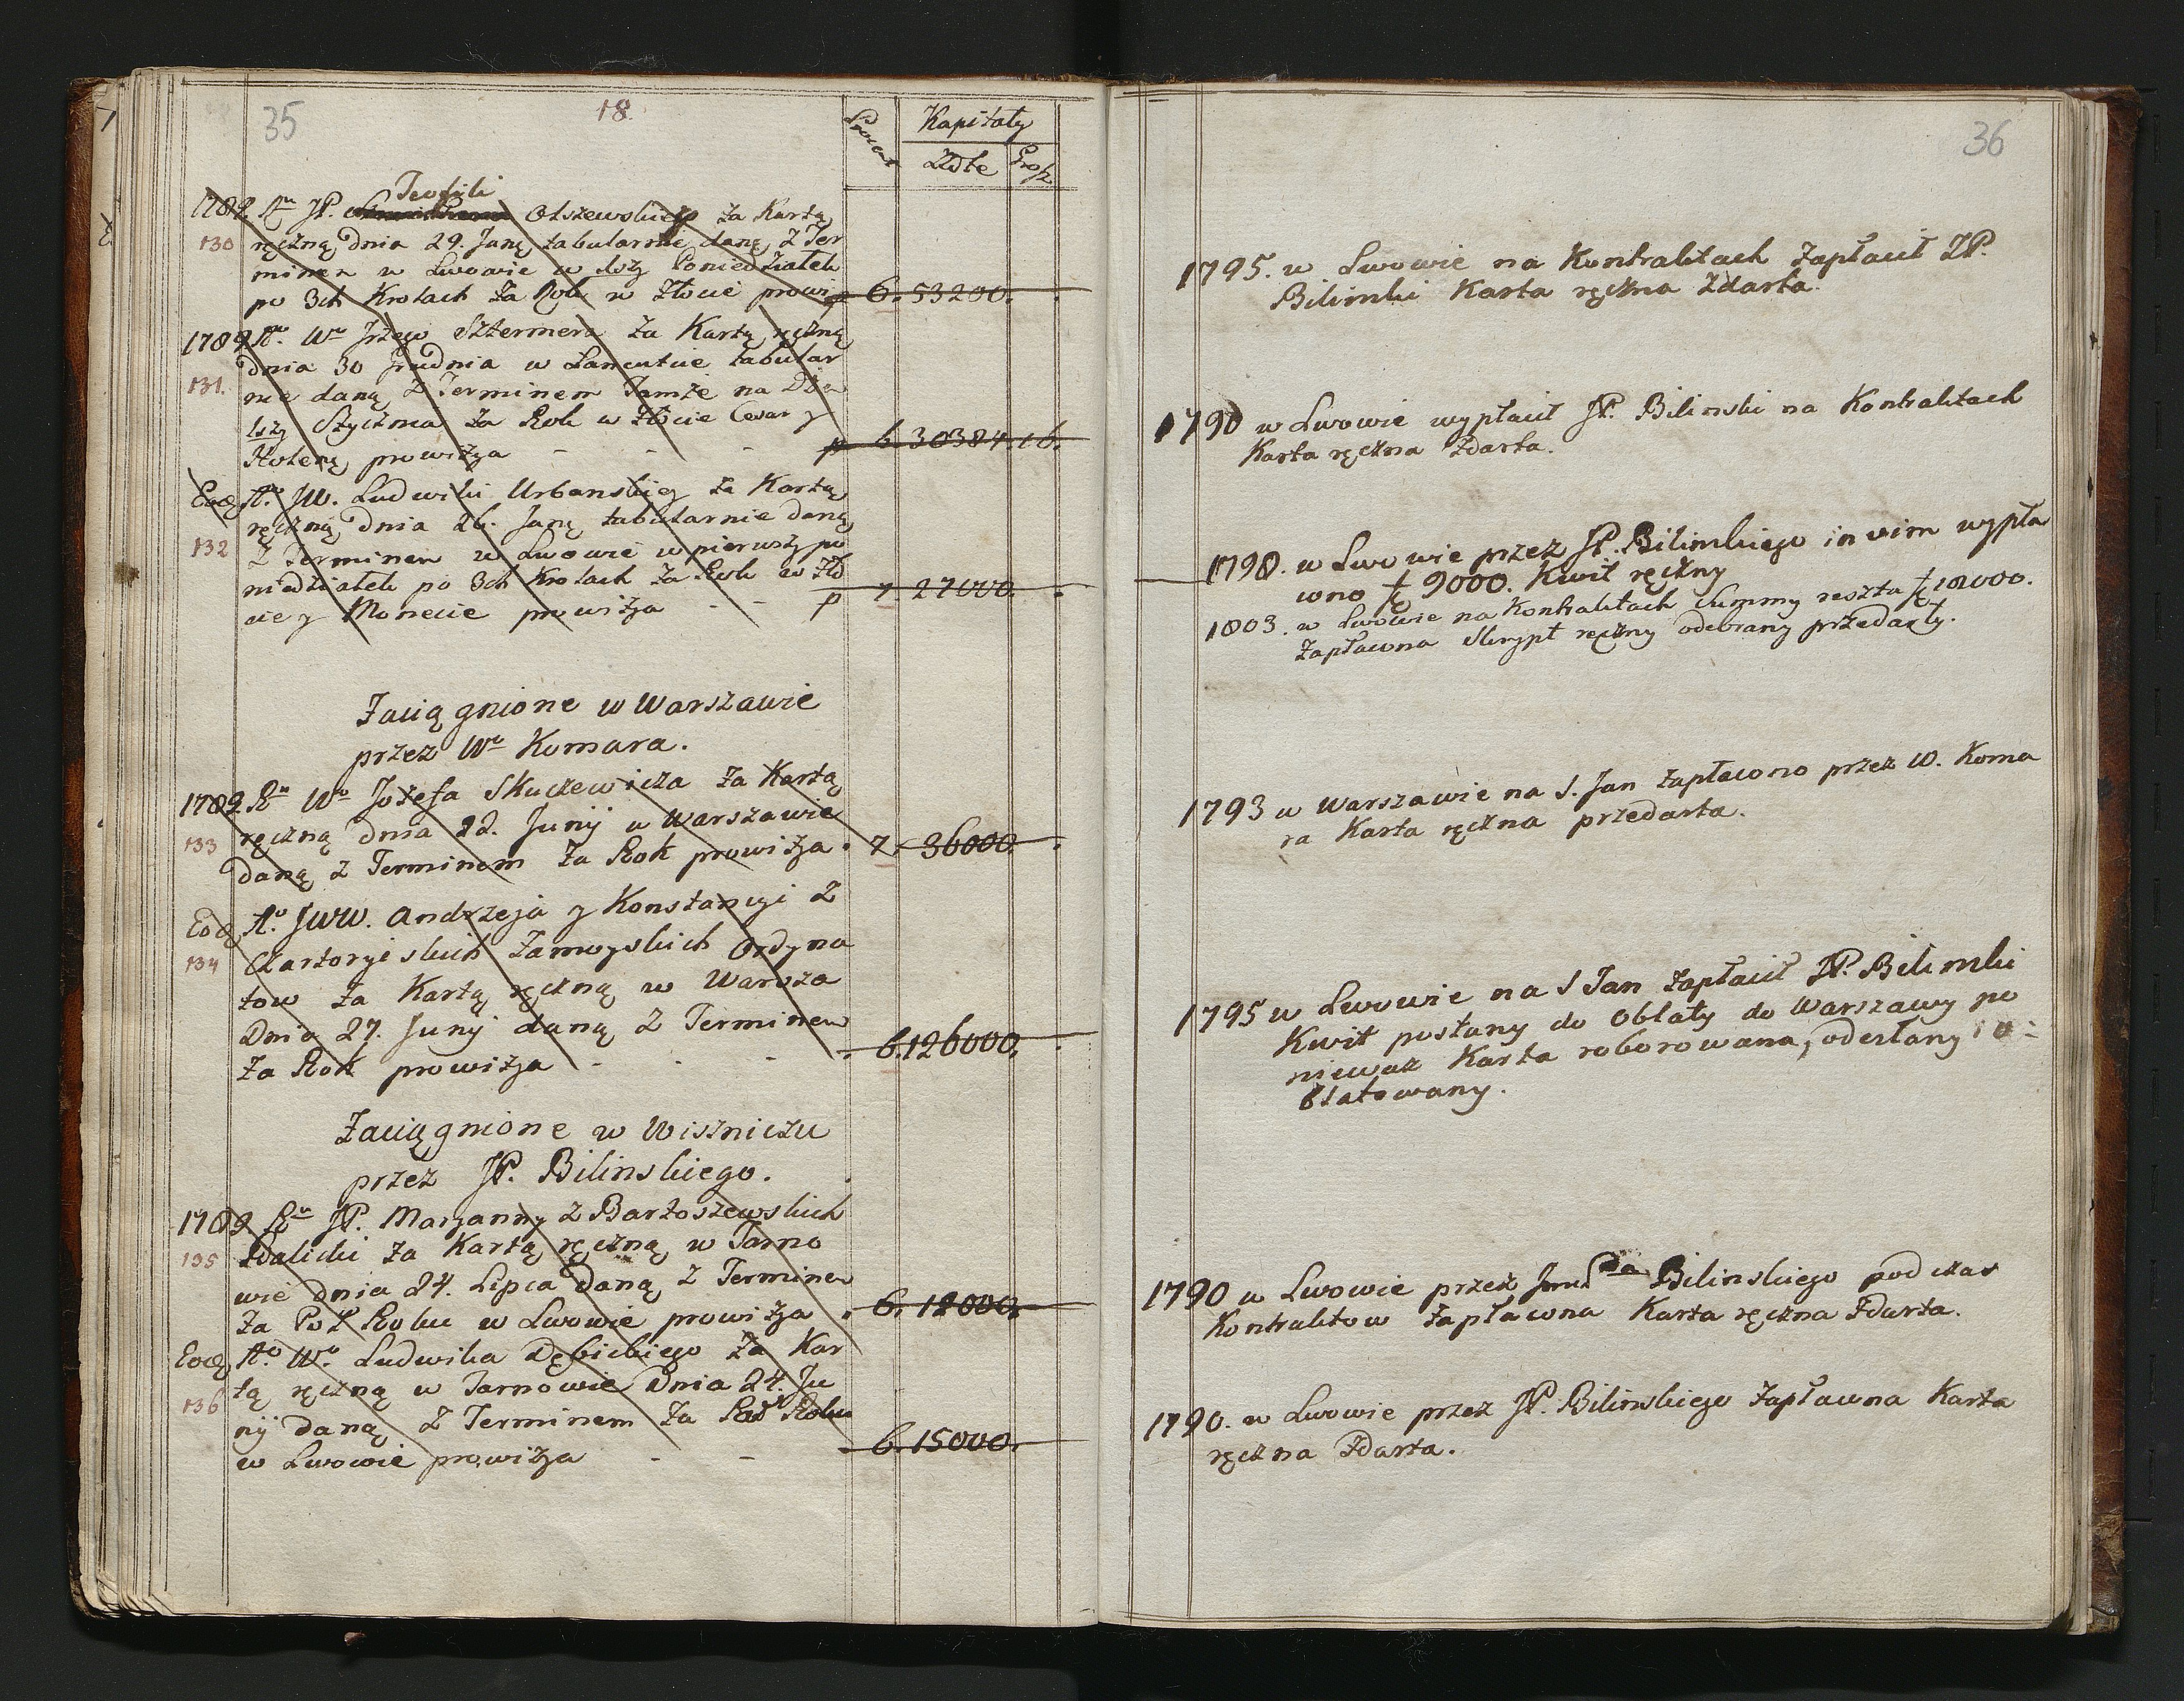 35
18.
Procent
Kapitały
Złote
Grosz
Teofili
1789. Ao JP. Olszewskiego za Kartą
130 ręczną dnia 29. Juny tabularnie daną, z Ter
minem w Lwowie w 1szy Poniedziałek
po 3ch Krolach za Rok w złocie prowi p 6. 53200.
1789 Ao. Wo Jrzego Sztermera za Kartą ręczną
dnia 30 Grudnia w Lancutcie tabular
131. nie daną z Terminem Tamże na Dzień
1szy Stycznia za Rok w złocie Cesar y
Holen, prowizya - - - p 6. 30384. 16.
Eod Ao. JW. Ludwiki Urbanskiey za Kartą
ręczną dnia 26. Juny tabularnie daną
132 z Terminem w Lwowie w pierwszy po
niedziałek po 3ch Krolach za Rok w zło
cie y Monecie prowizya - - p 7. 27000.
Zaciągnione w Warszawie
przez Wo Komara.
1789 Ao Wo Jozefa Skuczewicza za Kartą
ręczną dnia 22. Junij w Warszawie
133 daną z Terminem za Rok prowizya . 7. 36000.
Eod Ao. JWW. Andrzeja y Konstancyi z
134 Czartoryiskich Zamoyskich Ordyna
tow za Kartą ręczną w Warsza
Dnia 27. Junij daną z Terminem
za Rok prowizya - - - . 6. 126000.
Zaciągnione w Wiszniczu
przez JP. Bilinskiego.
1789 Ao JP. Maryanny z Bartoszewskich
135 Zdalicki za Kartą ręczną w Tarno
wie dnia 24. Lipca daną z Terminem
za Poł Roku w Lwowie prowizya . 6. 18000.
Eod Ao. Wo. Ludwika Dębickiego za Kar
136 tą ręczną w Tarnowie Dnia 24. Ju
nij daną z Terminem za Poł Roku
w Lwowie prowizya - - . 6. 15000.
36
1795. w Lwowie na Kontraktach zapłacił JP.
Bilinski Karta ręczna zdarta.
1790 w Lwowie wypłacił JP. Bilinski na Kontraktach
Karta ręczna zdarta.
1798. w Lwowie przez JP. Bilinskiego in vim wypła
cono 9000. Kwit ręczny
1803. w Lwowie na Kontraktach Summy reszta 18000.
zapłacona Skrypt ręczny odebrany przedarty.
1793 w Warszawie na S. Jan zapłacono przez W. Koma
ra Karta ręczna przedarta.
1795 w Lwowie na S Jan zapłacił JP. Bilinski
Kwit posłany do oblaty do Warszawy po
niewaz Karta roborowana, odesłany i o=
blatowany.
1790 w Lwowie przez Bilinskiego podczas
Kontraktow zapłacona Karta ręczna zdarta.
1790. w Lwowie przez JP. Bilinskiego zapłacona Karta
ręczna zdarta.